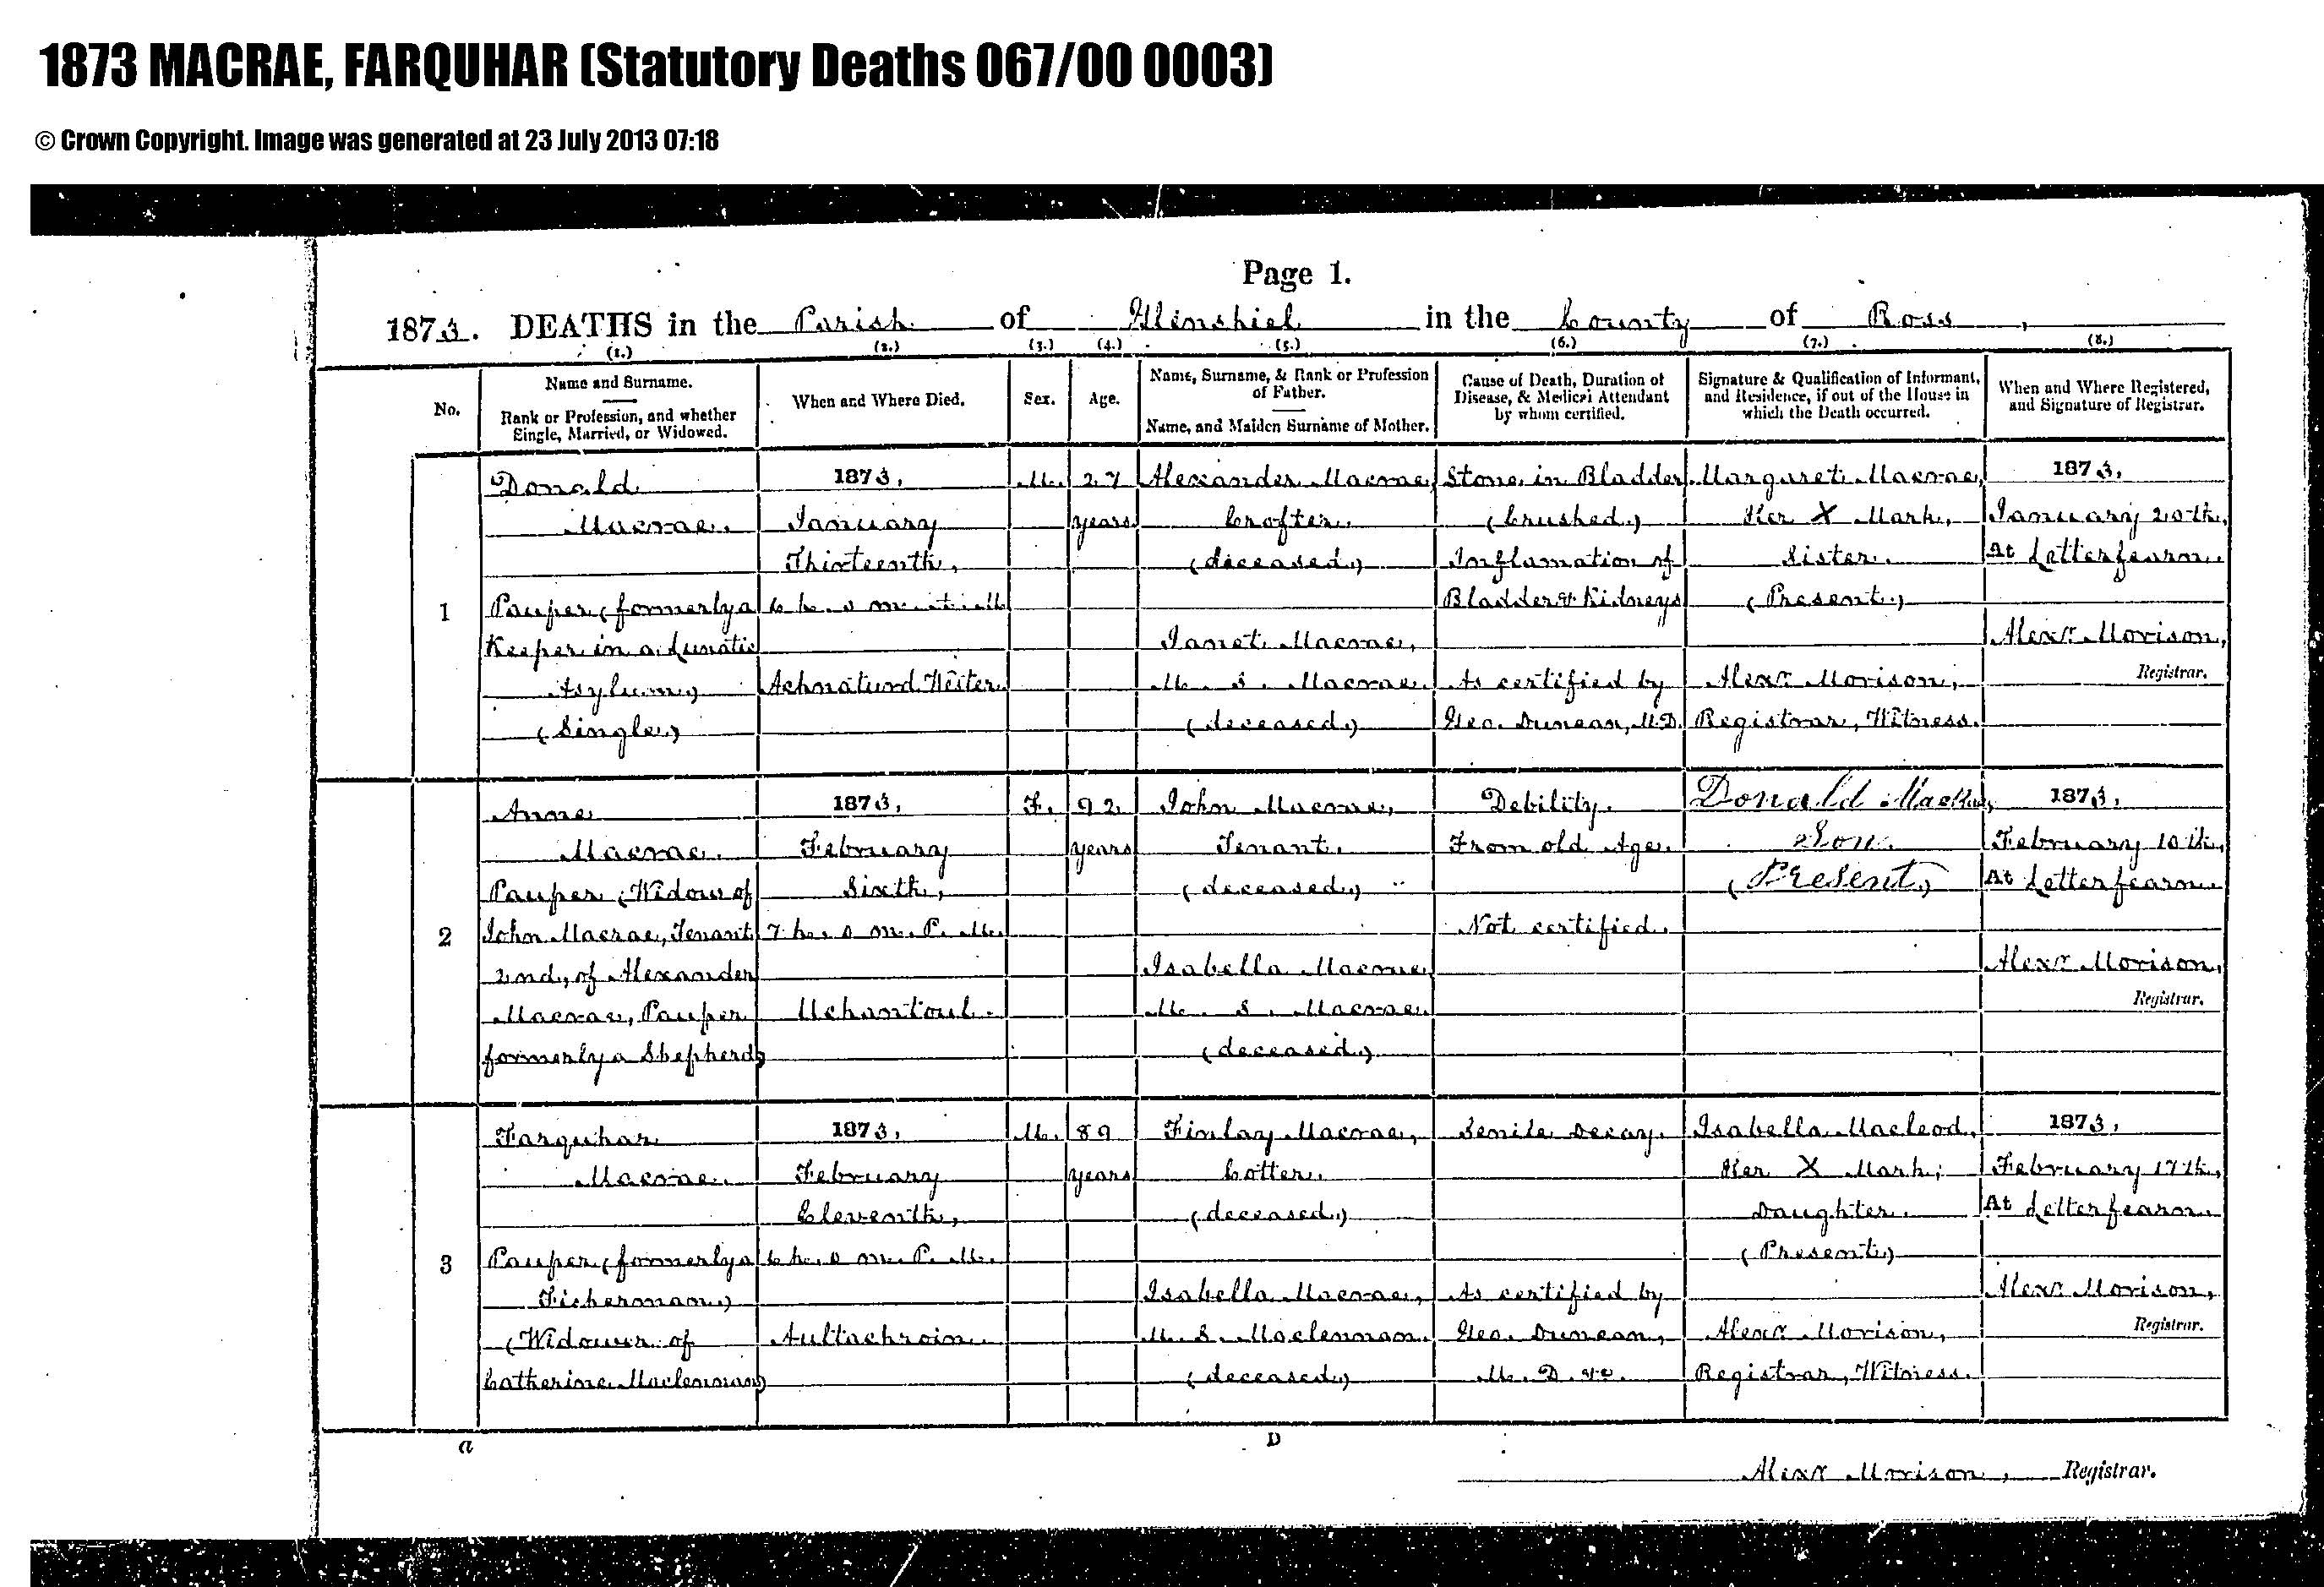 1873 MACRAE, FARQUHAR (Statutory Deaths 067/00 0003)
© Crown Copyright. Image was generated at 23 July 2013 07:18
Page 1.
1873. DEATHS in the Parish of Glenshiel in the County of Ross,
(1.) (2.) (3.) (4.) (5.) (6.) (7.) (8.)
No.
Name and Surname.
Rank or Profession, and whether
Single, Married, or Widowed.
When and Where Died.
Sex.
Age.
Name, Surname, & Rank or Profession
of Father.
Name, and Maiden Surname of Mother.
Cause of Death, Duration of
Disease, & Medical Attendant
by whom certified.
Signature & Qualification of Informant,
and Residence, if out of the House in
which the Death occurred.
When and Where Registered,
and Signature of Registrar.
1
Donald
Macrae.
Pauper (formerly a
Keeper in a Lunatic
Asylum)
(Single)
1873,
January
Thirteenth,
6 h. 0 m.
Achnaturd Wester.
M.
27
years
Alexander Macrae,
Crofter.
(deceased)
Janet Macrae,
M. S. Macrae.
(deceased)
Stone in Bladder
(Crushed)
Inflamation of
Bladder & Kidneys
As certified by
Geo. Duncan, M.D.
Margaret Macrae,
Her X Mark,
Sister.
(Present)
Alexr Morison,
Registrar, Witness.
1873,
January 20th,
At Letterfearn.
Alexr Morison,
Registrar.
2
Anne
Macrae.
Pauper (Widow of
John Macrae, Tenant
2nd, of Alexander
Macrae, Pauper
formerly a Shepherd)
1873,
February
Sixth,
7 h. 0 m. P. M.
Uchantoul.
F.
92
years
John Macrae,
Tenant.
(deceased)
Isabella Macrae
M. S. Macrae.
(deceased)
Debility.
From old Age.
Not certified.
Donald MacRae,
Son.
(Present)
1873,
February 10th,
At Letterfearn.
Alexr Morison,
Registrar.
3
Farquhar
Macrae.
Pauper (formerly a
Fisherman)
(Widower of
Catherine Maclennan)
1873,
February
Eleventh,
6 h. 0 m. P. M.
Aultachroin.
M.
89
years
Finlay Macrae,
Cotter.
(deceased)
Isabella Macrae,
M. S. Maclennan.
(deceased)
Senile Decay.
As certified by
Geo. Duncan,
M. D. &c.
Isabella Macleod,
Her X Mark;
Daughter.
(Present)
Alexr Morison,
Registrar, Witness.
1873,
February 17th,
At Letterfearn.
Alexr Morison,
Registrar.
a D
Alexr Morison, Registrar.